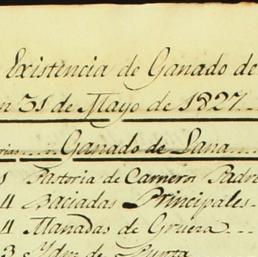 Existencia de Ganado de
n 31 de Mayo de 1827
rias Ganado de Lana
1 Pastoria de Carneros Padre
4 Baciadas Principales
4 Manadas de Gruesa
3 Ydm de Punta